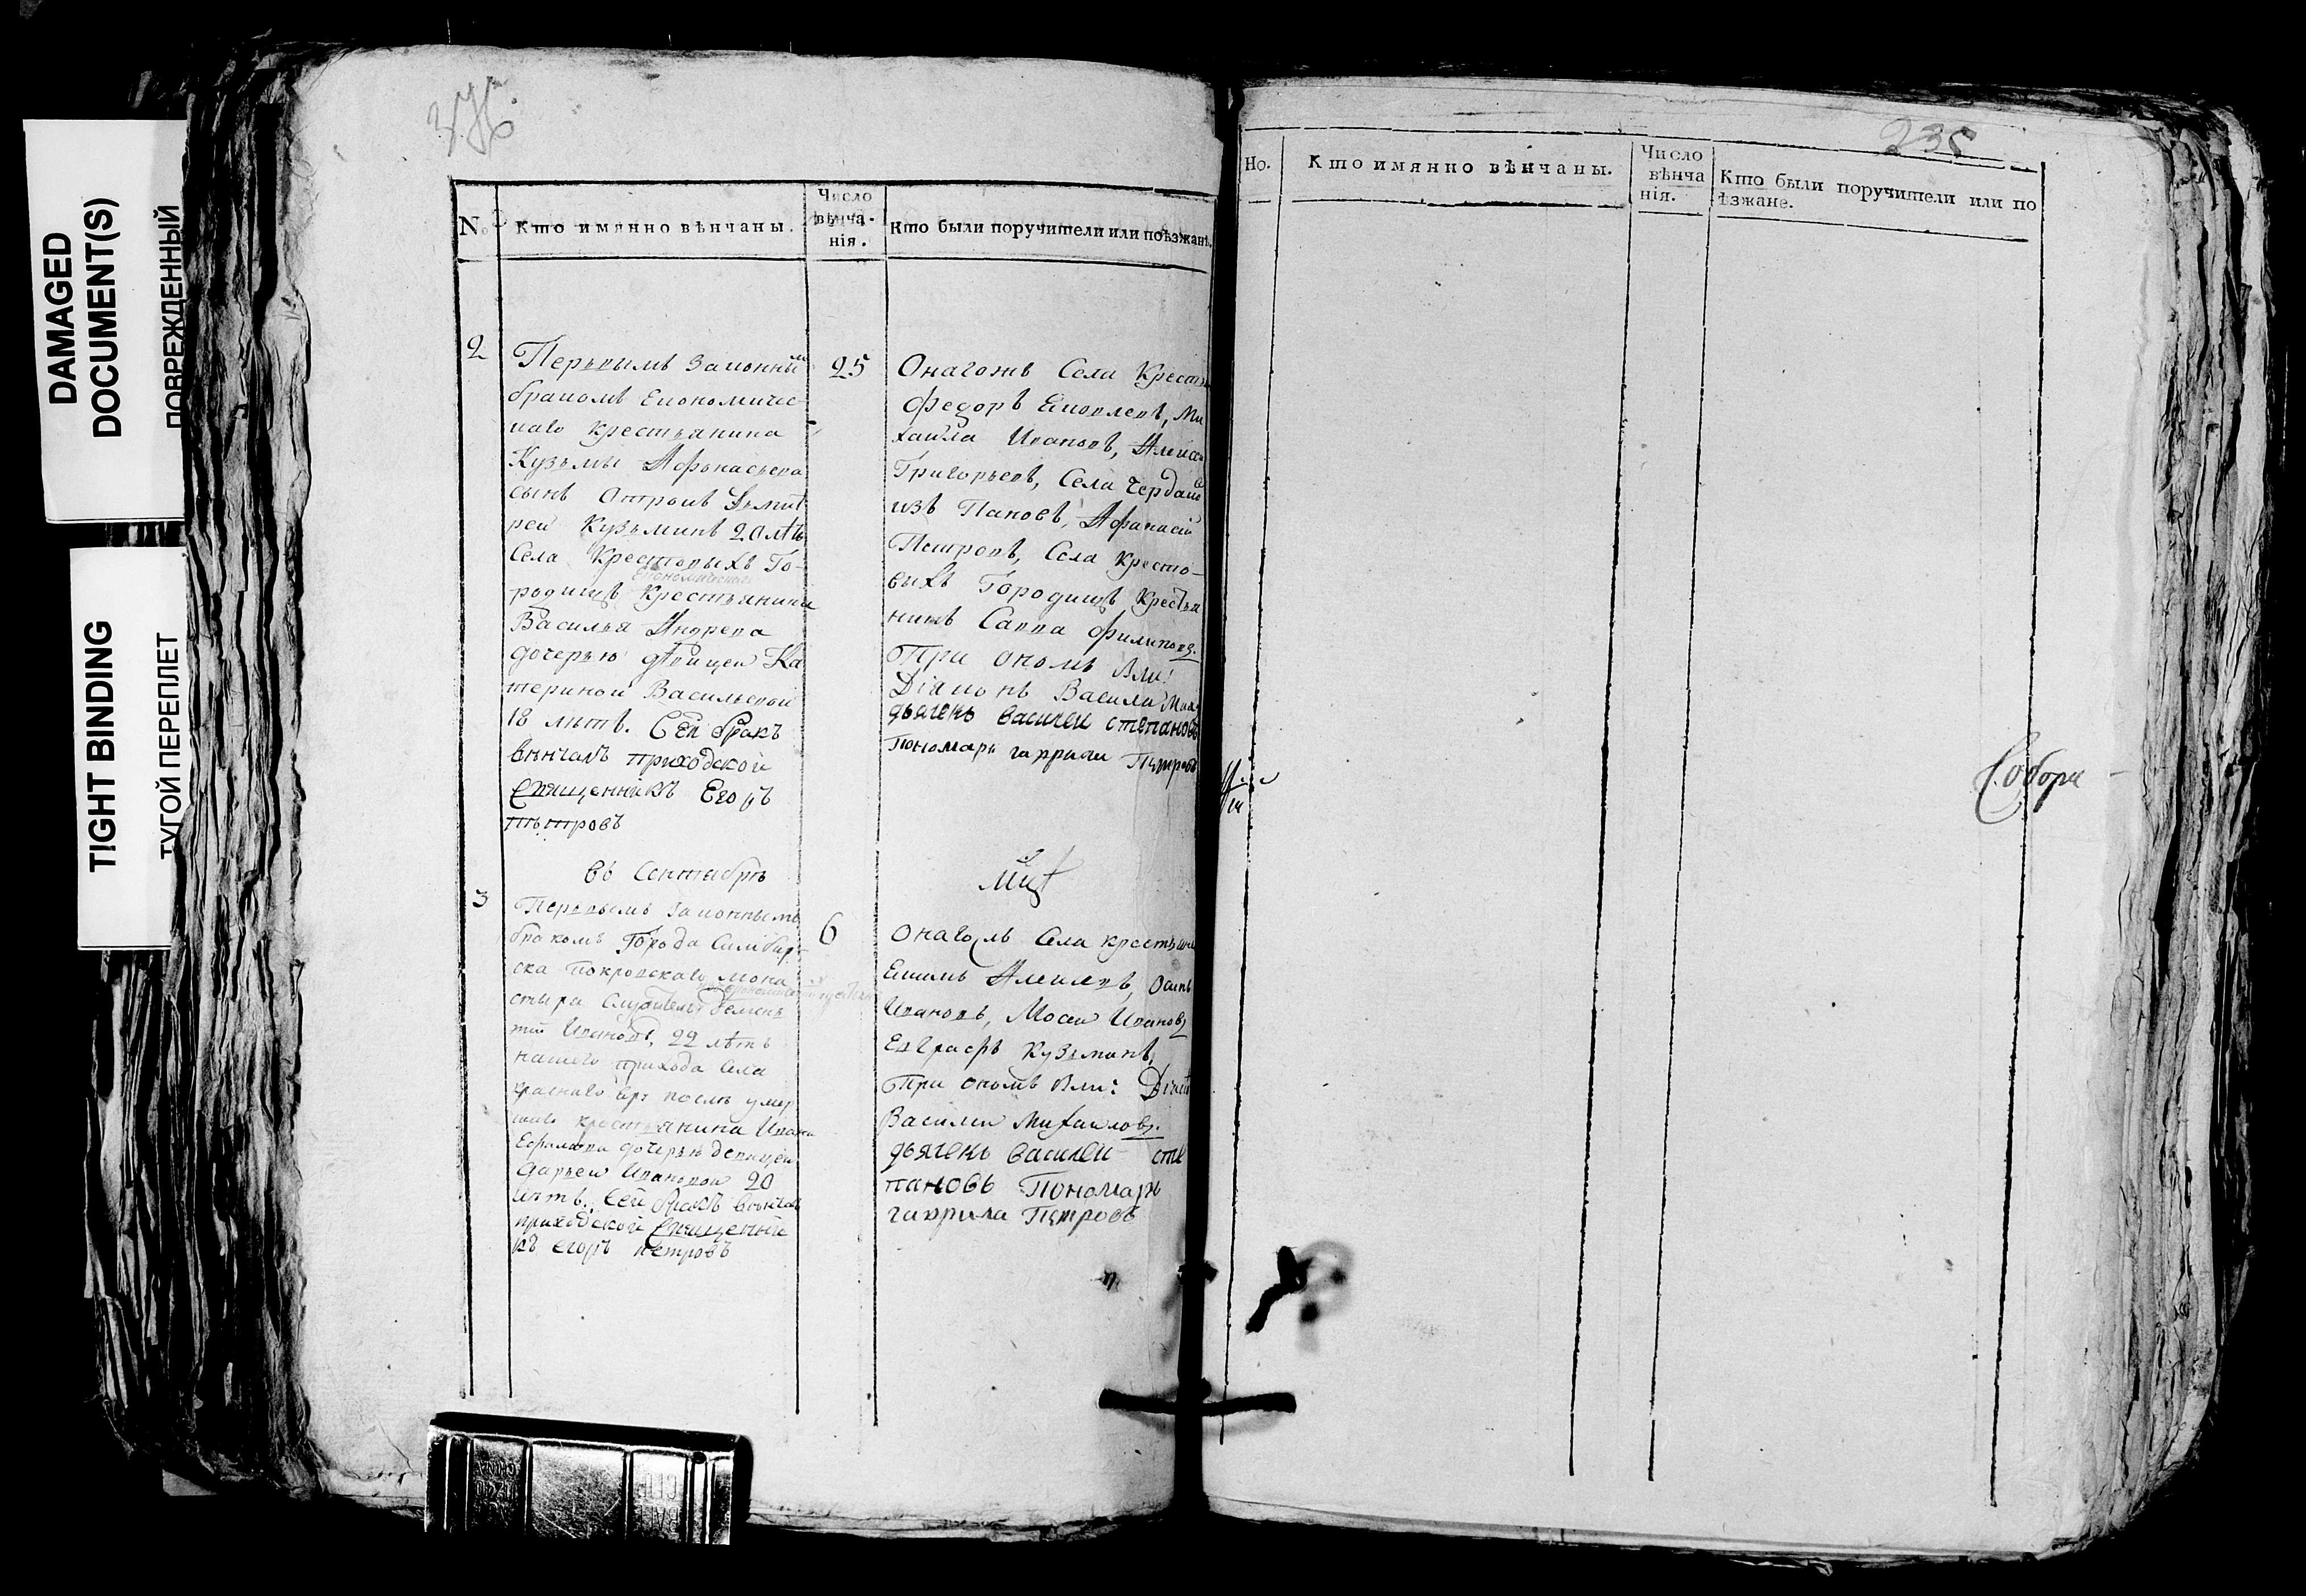 DAMAGED
DOCUMENT(S)
ПОВРЕЖДЕННЫЙ
TIGHT BINDING
ТУГОЙ ПЕРЕПЛЕТ
376
№
Кто имянно вѣнчаны.
Число
вѣнча-
нія.
Кто были поручители или поѣзжанѣ.
2
Первымъ законным
бракомъ Економичес
каго крестьянина
Кузьмы Афонасьева
сынъ отрокъ Дьмит
рей Кузьминъ 20 лѣтъ
Села Крестовыхъ Го-
економическаго
родищъ Крестьянина
Василья Андрева
дочерью дѣвицей Ка
териной Васильевой
18 лѣтъ. Сей бракъ
вѣнчалъ приходской
Священникъ Егоръ
петровъ
25
Онагожъ Села Кресть
Федоръ Яковлевъ, Ми
хайла Ивановъ, Алексѣ
Григорьевъ, Села Чердакъ
изъ Панов, Афанасей
Петровъ, Села Кресто-
выхъ Городищъ Крестья
нинъ Савва Филиповъ.
При ономъ были:
Діаконъ Василий Миха
дьячекъ василеи степановъ
Пономарь гаврила Петровъ
въ Сентябрѣ
мцѣ
3
Первымъ законнымъ
бракомъ Города Симбир-
ска покровскаго мона
стыря служитель
Ивановъ, 22 лѣтъ
нашего прихода Села
краснаго яру послѣ умер
шаго крестьянина Ивана
дочерью девицей
Дарьей Ивановой 20
лѣтъ. Сей бракъ вѣнчалъ
приходской Священни
къ егоръ петровъ
6
онагожъ Села крестьяне
Екимъ Алексевъ, Осипъ
Ивановъ, Мосей Ивановъ
Евграфъ Кузьминъ,
При ономъ были: Діаконъ
Василей Михайловъ.
дьячекъ василеи сте
пановъ Пономарь
гаврила Петровъ
235
Но.
Кто имянно вѣнчаны.
Число
вѣнча
нія.
Кто были поручители или по
ѣзжане.
Собора